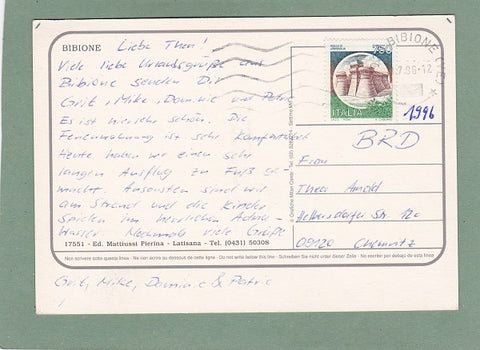 BIBIONE Liebe Thea!
Viele liebe Urlaubsgrüße aus
Bibione senden Dir
Grit, Mike, Dominic und Patric
Es ist hier sehr schön. Die
Ferienwohnung ist sehr komfortabel
Heute haben wir einen sehr
langen Ausflug zu Fuß ge-
macht. Ansonsten sind wir
am Strand und die Kinder
spielen im herrlichen Adria-
Wasser. Nochmals viele Grüße
17551 - Ed. Mattiussi Pierina - Latisana - Tel. (0431) 50308
Non scrivere sotto questa linea - Ne rien écrire au dessous de cette ligne - Do not write below this line - Schreiben Sie nicht unter dieser Zeile - No escriban por debajo de esta línea
Grit, Mike, Dominic & Patric
750
ITALIA
BIBIONE (VE)
7.96-12
1996
BRD
Frau
Thea Arnold
Str. 12c
09120 Chemnitz